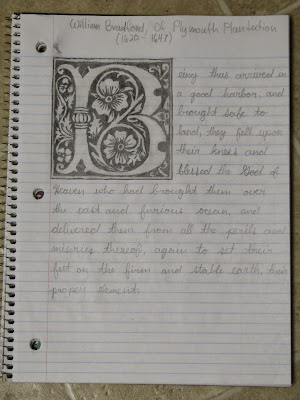 William Bradford, Of Plymouth Plantation
(1620-1647)
B
eing thus arrived in
a good harbor, and
brought safe to
land, they fell upon
their knees and
blessed the God of
Heaven who had brought them over
the vast and furious ocean, and
delivered them from all the perils and
miseries thereof, again to set their
feet on the firm and stable earth, their
proper element.